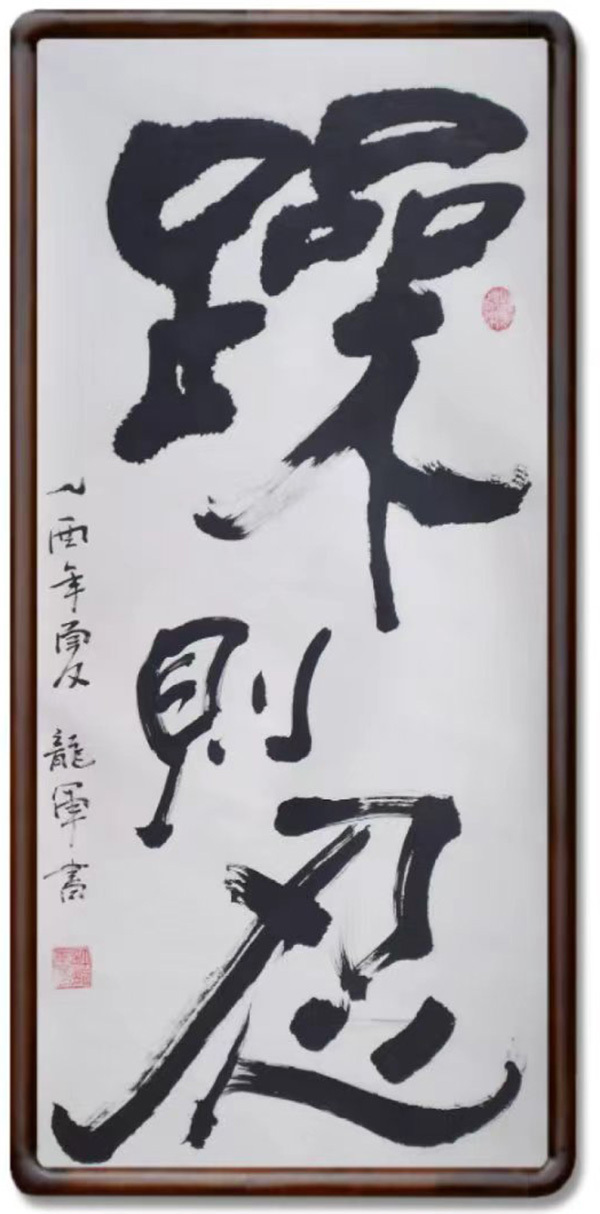 躁則忍
乙酉年夏 龍軍書